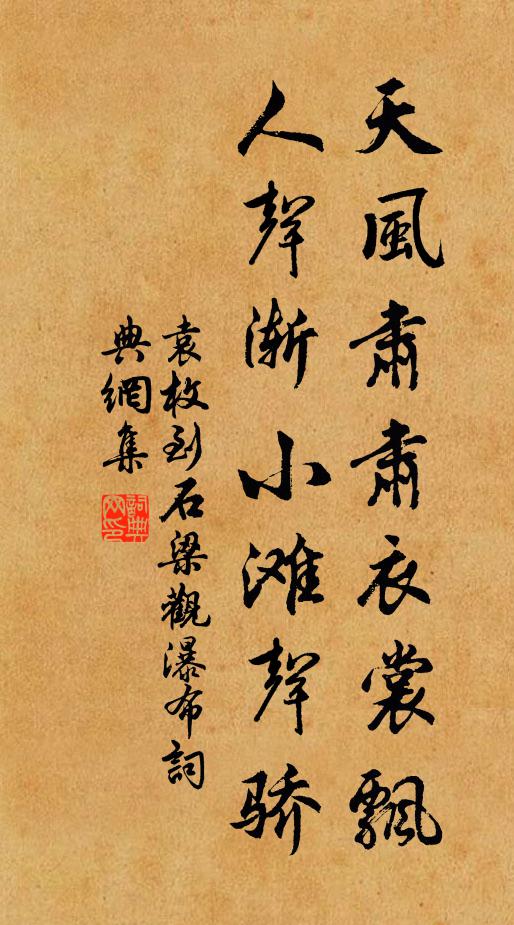 天風肅肅衣裳飄
人聲渐小滩聲骄
袁枚到石梁觀瀑布詞
典網集
詞典網印